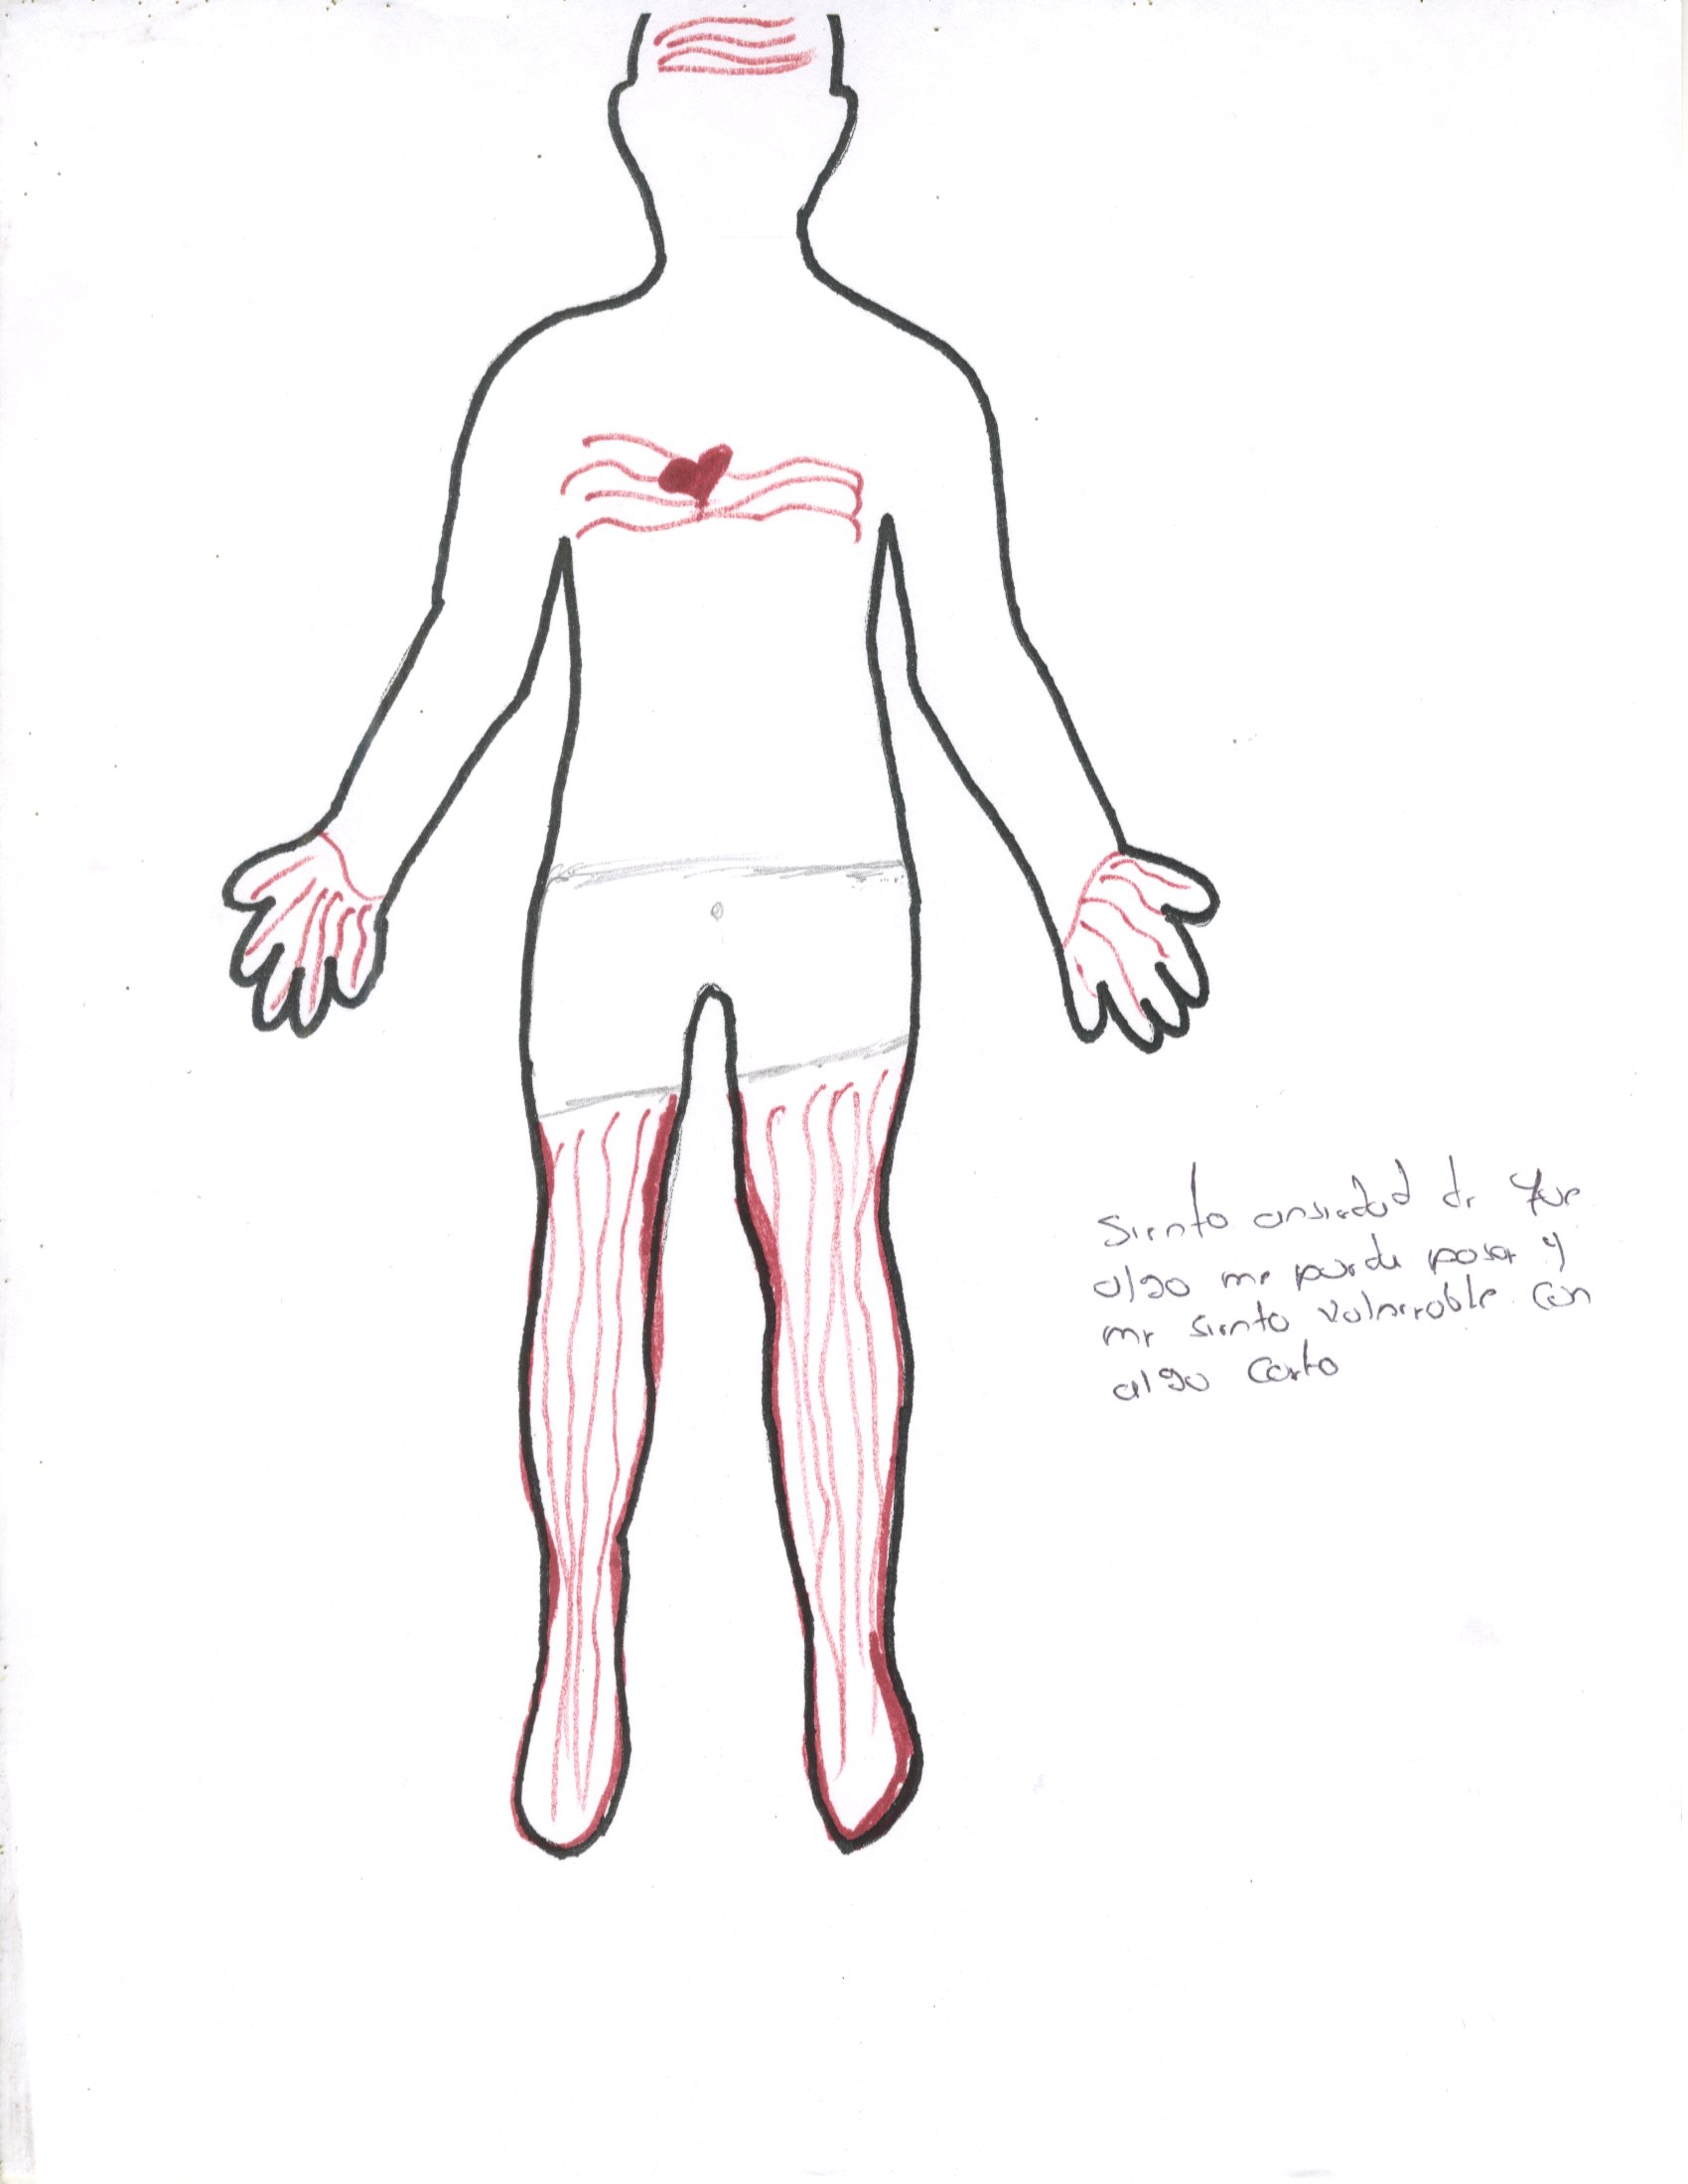 Siento ansiedad de que
algo me puede pasar y
me siento vulnerable con
algo corto